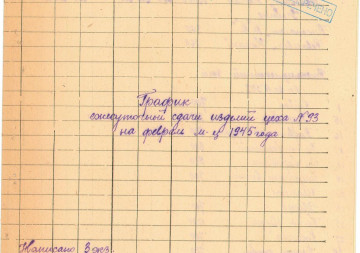 График
ежесуточной сдачи изделий цеха №93
на февраль м-ц 1945 года
Написано 3 экз.